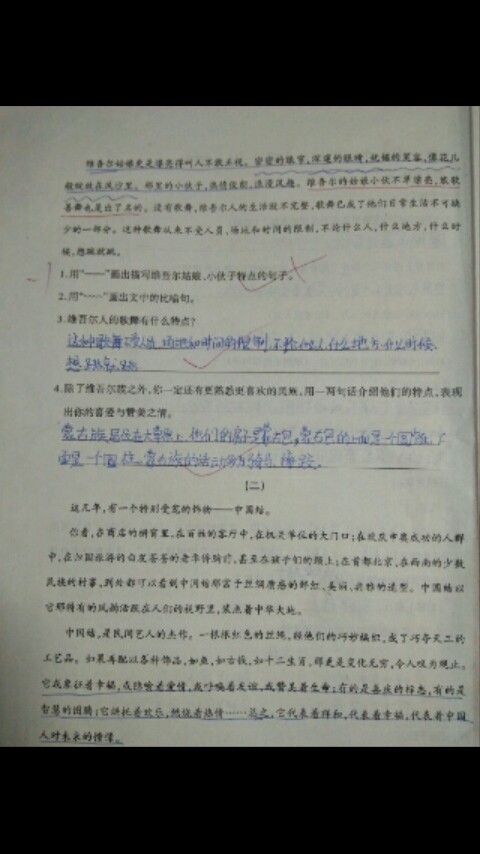 维吾尔姑娘更是漂亮得叫人不敢正视。密密的眼帘,深邃的眼睛,妩媚的笑容,像花儿
般绽放在风沙里。那里的小伙子,热情俊朗,浪漫风趣。维吾尔的姑娘小伙不单漂亮,能歌
善舞也是出了名的。没有歌舞,维吾尔人的生活就不完整,歌舞已成了他们日常生活不可缺
少的一部分。这种歌舞从来不受人员、场地和时间的限制,不论什么人,什么地方,什么时
候,想跳就跳。
1.用“——”画出描写维吾尔姑娘、小伙子特点的句子。
2.用“﹏﹏”画出文中的比喻句。
3.维吾尔人的歌舞有什么特点?
这种歌舞不受人员、场地和时间的限制,不论什么人,什么地方,什么时候,
想跳就跳
4.除了维吾尔族之外,你一定还有更熟悉更喜欢的民族,用一两句话介绍他们的特点,表现
出你的喜爱与赞美之情。
蒙古族居住在大草原上,他们的房子是蒙古包,蒙古包的上面是一个圆锥,下
面是一个圆柱。蒙古族的活动为骑马、摔跤。
(二)
这几年,有一个特别受宠的饰物——中国结。
你看,在商店的橱窗里,在百姓的客厅中,在机关单位的大门口;在欢庆申奥成功的人群
中,在归国旅游的白发苍苍的老华侨胸前,甚至在孩子们的颈上;在首都北京,在西南的少数
民族的村寨,到处都可以看到中国结那富于丝绸质感的鲜红、美丽、典雅的造型。中国结以
它那特有的风韵活跃在人们的视野里,装点着中华大地。
中国结,是民间艺人的杰作。一根根红色的丝绳,经他们的巧妙编织,成了巧夺天工的
工艺品。如果再配以各种饰品,如鱼,如古钱,如十二生肖,那更是变化无穷,令人叹为观止。
它或象征着幸福,或隐喻着爱情,或呼唤着友谊,或赞美着生命;有的是喜庆的标志,有的是
智慧的图腾;它烘托着欢乐,燃烧着热情……总之,它代表着祥和,代表着幸福,代表着中国
人对未来的憧憬。